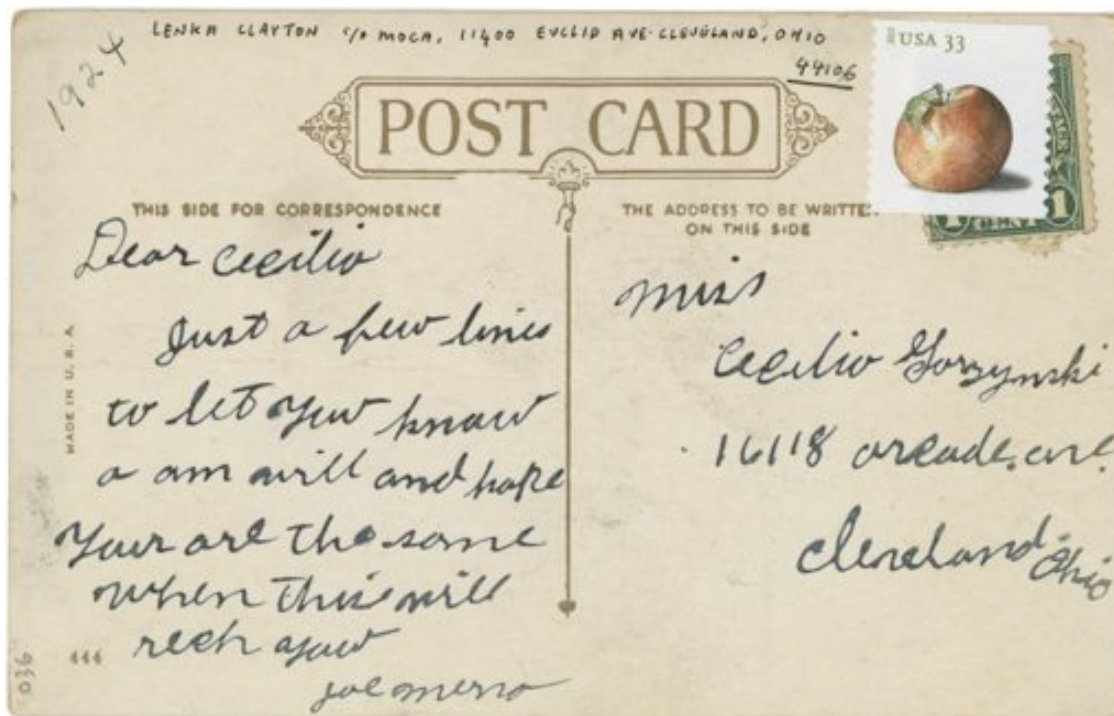 LENKA CLAYTON C/O MOCA, 11400 EUCLID AVE. CLEVELAND, OHIO
44106
1924
USA 33
POST CARD
1
THIS SIDE FOR CORRESPONDENCE
THE ADDRESS TO BE WRITTEN
ON THIS SIDE
Dear Cecilia
Just a few lines
to let you know
a am will and hope
your are the same
when this will
rech you
Joe
Miss
Cecilia Gorzynski
16118 arcade. ave.
Cleveland. Ohio
MADE IN U.S.A.
444
036